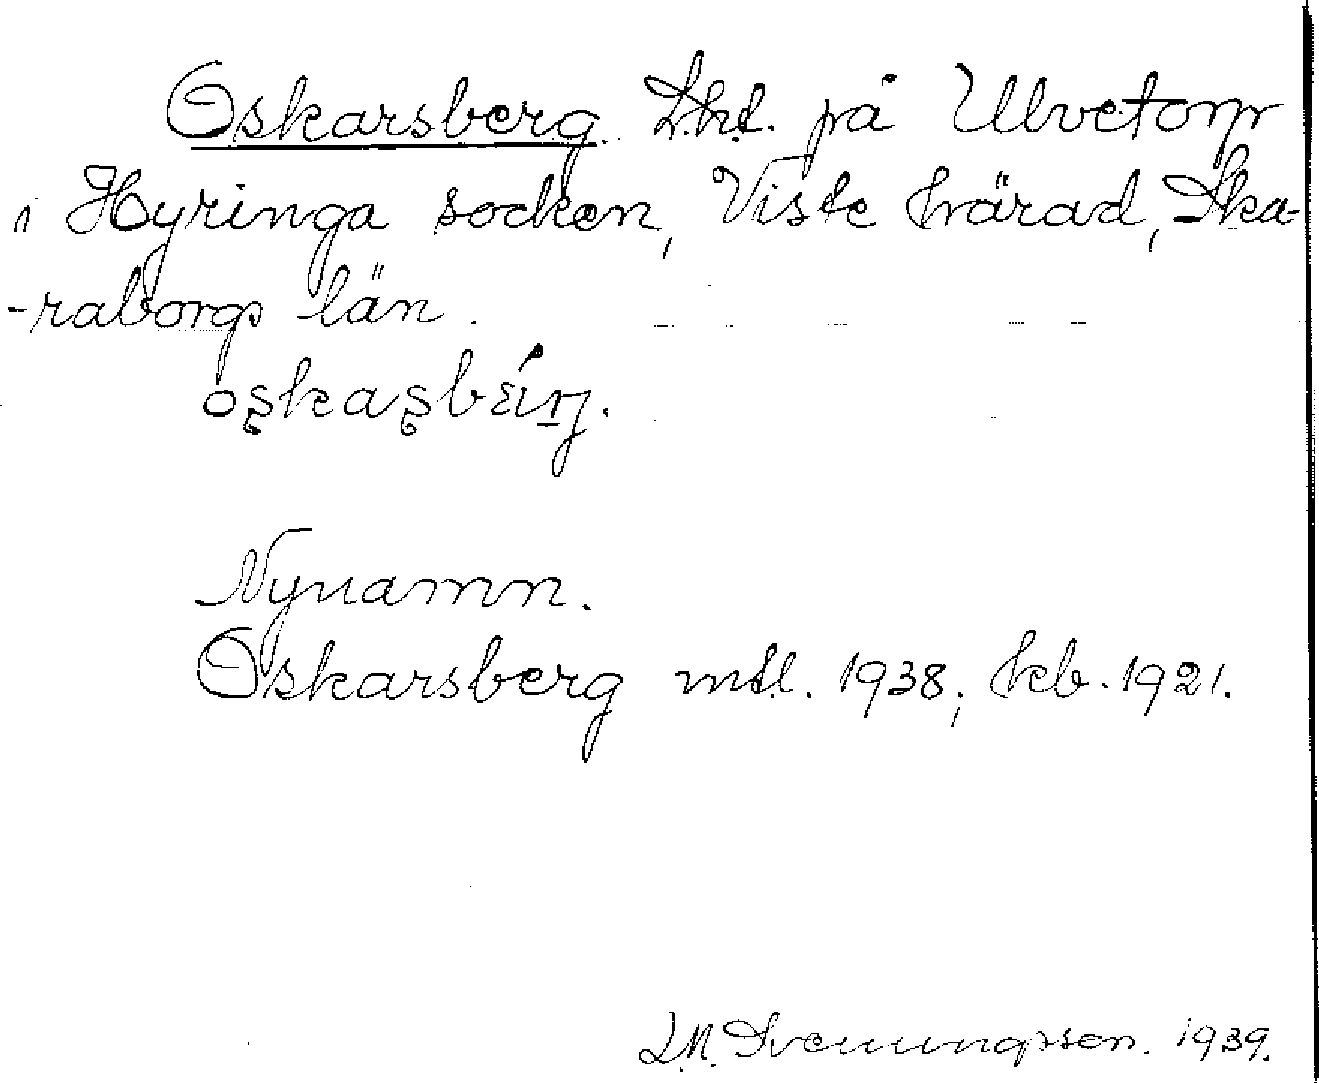 Oskarsberg. Lht. på Ulvetorp
i Hyringa socken, Viste härad, Ska-
-raborgs län.
Nynamn.
Oskarsberg mtl. 1938; kb. 1921.
Svenungsson. 1939.